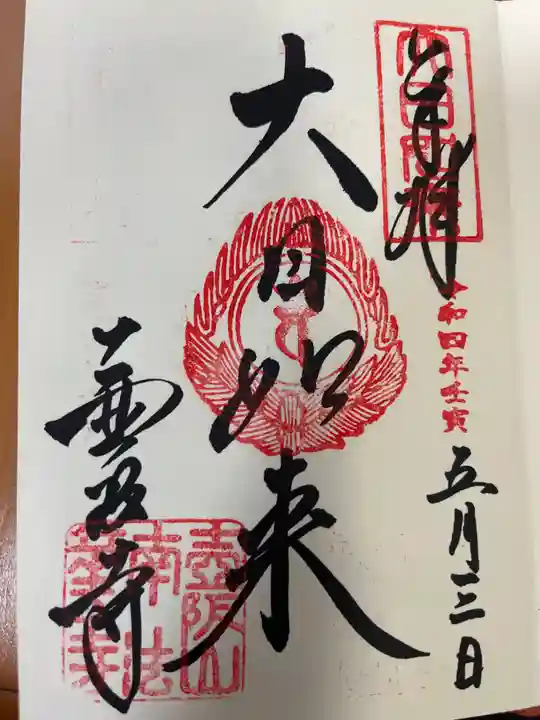 奉拝
令和四年壬寅 五月三日
大日如来
壷阪寺
壷阪山
南法
華寺